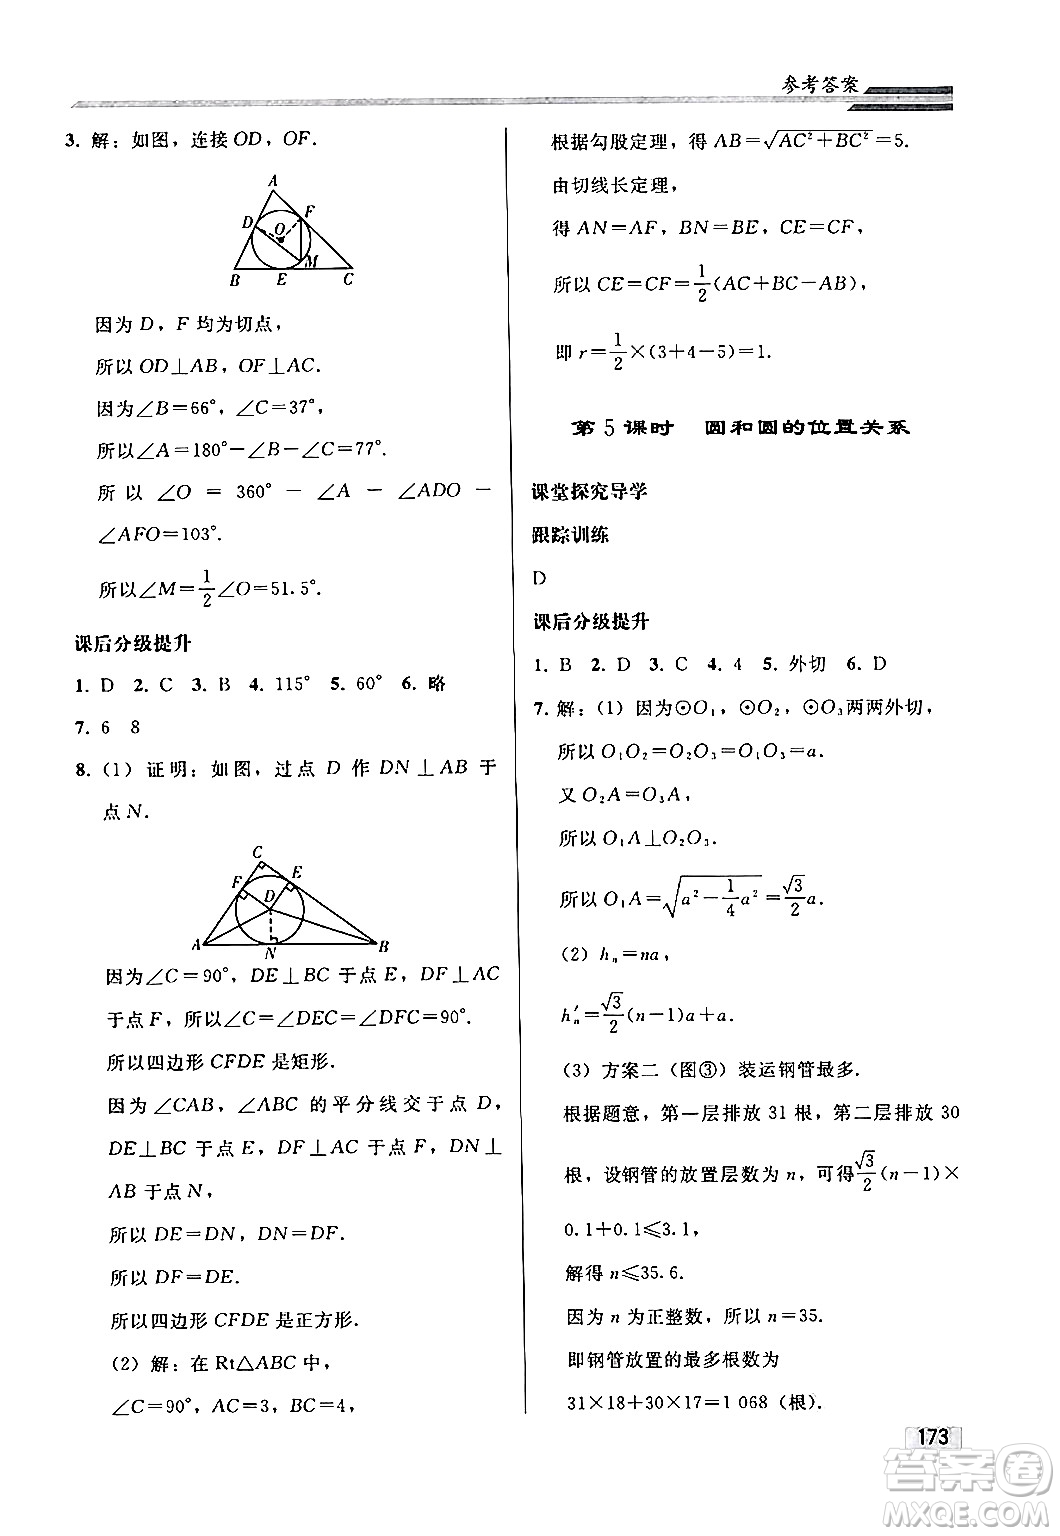 参考答案
3. 解：如图，连接 OD，OF.
A
D
F
O
M
B
E
C
因为 D，F 均为切点，
所以 OD⊥AB，OF⊥AC.
因为∠B＝66°，∠C＝37°，
所以∠A＝180°－∠B－∠C＝77°.
所以 ∠O ＝ 360° － ∠A － ∠ADO －
∠AFO＝103°.
所以∠M＝1/2∠O＝51.5°.
课后分级提升
1. D 2. C 3. B 4. 115° 5. 60° 6. 略
7. 6 8
8. (1) 证明：如图，过点 D 作 DN⊥AB 于
点 N.
C
F
E
D
A
N
B
因为∠C＝90°，DE⊥BC 于点 E，DF⊥AC
于点 F，所以∠C＝∠DEC＝∠DFC＝90°.
所以四边形 CFDE 是矩形.
因为 ∠CAB，∠ABC 的平分线交于点 D，
DE⊥BC 于点 E，DF⊥AC 于点 F，DN⊥
AB 于点 N，
所以 DE＝DN，DN＝DF.
所以 DF＝DE.
所以四边形 CFDE 是正方形.
(2) 解：在 Rt△ABC 中，
∠C＝90°，AC＝3，BC＝4，
根据勾股定理，得 AB＝√(AC²＋BC²)＝5.
由切线长定理，
得 AN＝AF，BN＝BE，CE＝CF，
所以 CE＝CF＝1/2(AC＋BC－AB)，
即 r＝1/2×(3＋4－5)＝1.
第 5 课时 圆和圆的位置关系
课堂探究导学
跟踪训练
D
课后分级提升
1. B 2. D 3. C 4. 4 5. 外切 6. D
7. 解：(1) 因为⊙O₁，⊙O₂，⊙O₃两两外切，
所以 O₁O₂＝O₂O₃＝O₁O₃＝a.
又 O₂A＝O₃A，
所以 O₁A⊥O₂O₃.
所以 O₁A＝√(a²－1/4a²)＝√3/2a.
(2) hₙ＝na，
h′ₙ＝√3/2(n－1)a＋a.
(3) 方案二（图③）装运钢管最多.
根据题意，第一层排放 31 根，第二层排放 30
根，设钢管的放置层数为 n，可得√3/2(n－1)×
0.1＋0.1≤3.1，
解得 n≤35.6.
因为 n 为正整数，所以 n＝35.
即钢管放置的最多根数为
31×18＋30×17＝1 068（根）.
173
答案圈
MXQE.COM